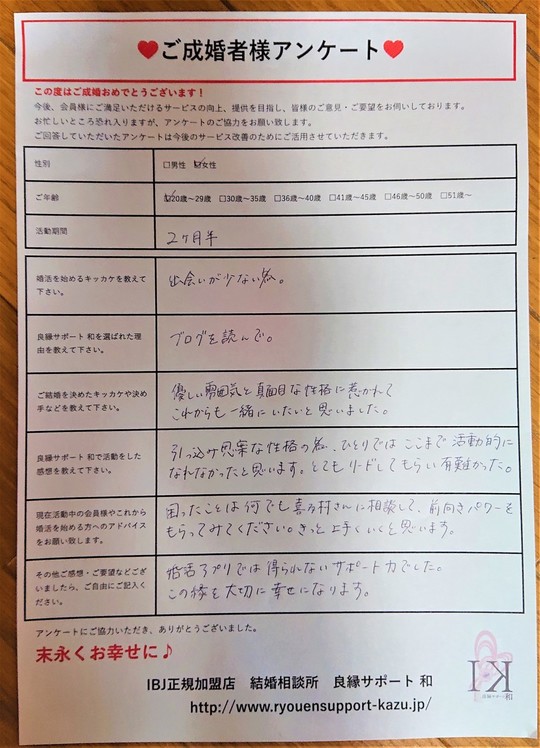 ♥ご成婚者様アンケート♥
この度はご成婚おめでとうございます！
今後、会員様にご満足いただけるサービスの向上、提供を目指し、皆様のご意見・ご要望をお伺いしております。
お忙しいところ恐れ入りますが、アンケートのご協力をお願い致します。
ご回答していただいたアンケートは今後のサービス改善のためにご活用させていただきます。
性別
□男性 ☑女性
ご年齢
☑20歳～29歳 □30歳～35歳 □36歳～40歳 □41歳～45歳 □46歳～50歳 □51歳～
活動期間
2ヶ月半
婚活を始めるキッカケを教えて
下さい。
出会いが少ない為。
良縁サポート 和を選ばれた理
由を教えて下さい。
ブログを読んで。
ご結婚を決めたキッカケや決め
手などを教えて下さい。
優しい雰囲気と真面目な性格に惹かれて
これからも一緒にいたいと思いました。
良縁サポート 和で活動をした
感想を教えて下さい。
引っ込み思案な性格の為、ひとりではここまで活動的に
なれなかったと思います。とてもリードしてもらい有難かった。
現在活動中の会員様やこれから
婚活を始める方へのアドバイス
をお願い致します。
困ったことは何でも喜多村さんに相談して、前向きパワーを
もらってみてください。きっと上手くいくと思います。
その他ご感想・ご要望などござ
いましたら、ご自由にご記入く
ださい。
婚活アプリでは得られないサポート力でした。
この縁を大切に幸せになります。
アンケートにご協力いただき、ありがとうございました。
末永くお幸せに♪
IBJ正規加盟店 結婚相談所 良縁サポート 和
http://www.ryouensupport-kazu.jp/